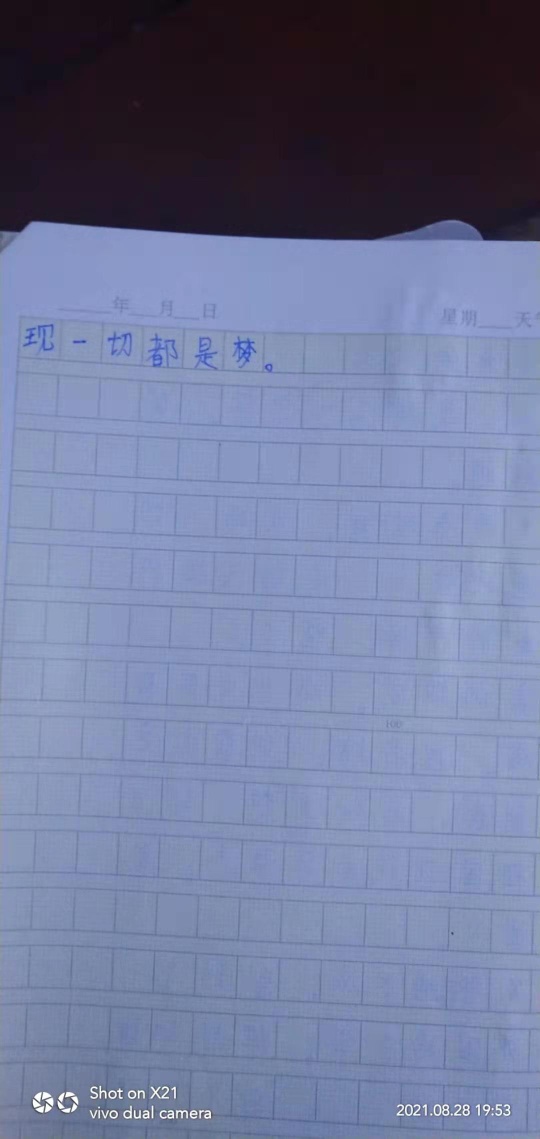 年 月 日 星期 天
现一切都是梦。
100
Shot on X21
vivo dual camera 2021.08.28 19:53